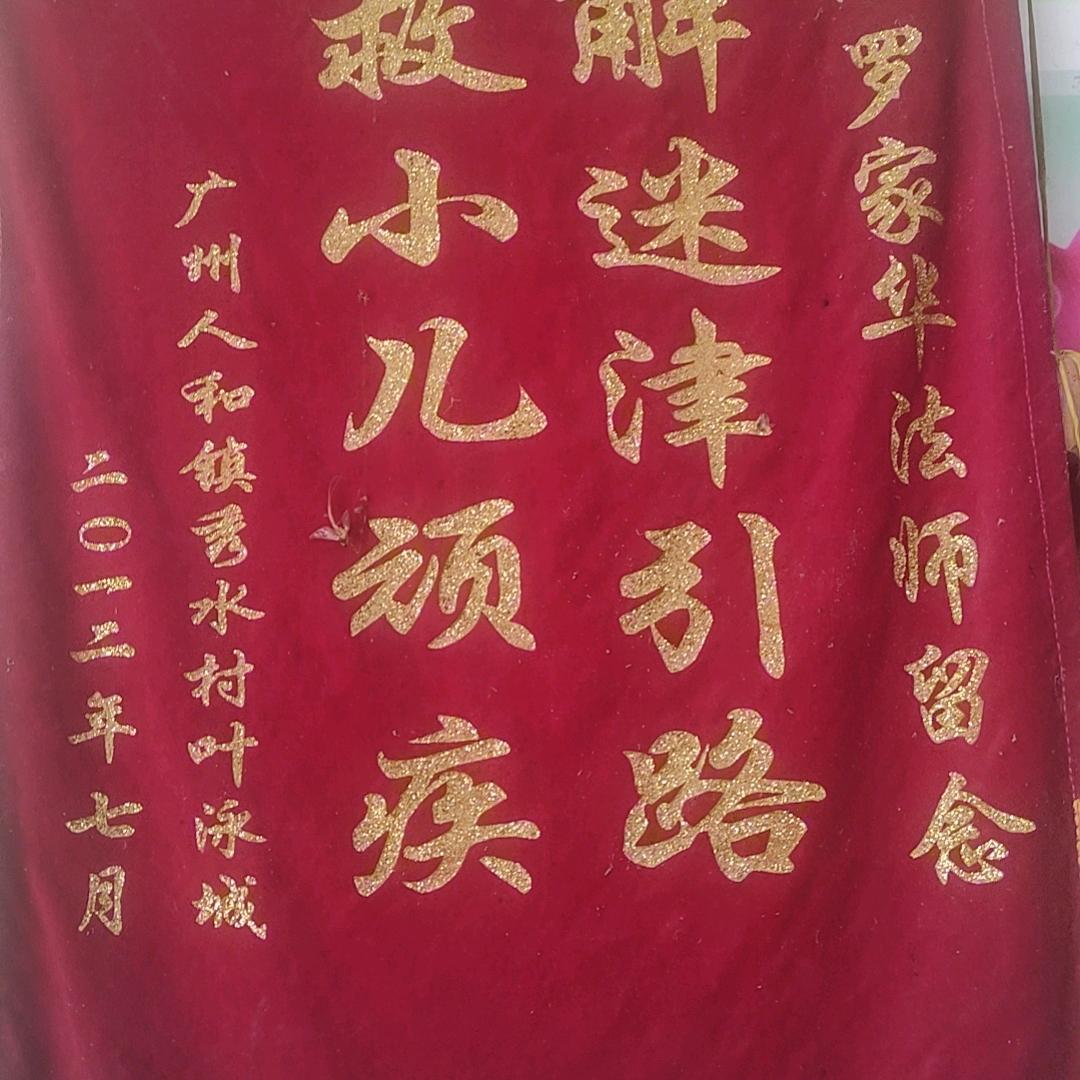 罗家华法师留念
解迷津引路
救小儿顽疾
广州人和镇秀水村叶泳城
二〇一二年七月